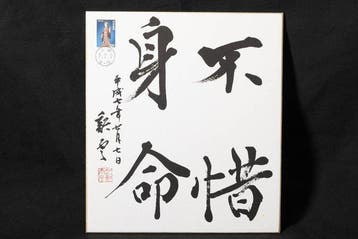 不惜
身命
平成七年廿月七日